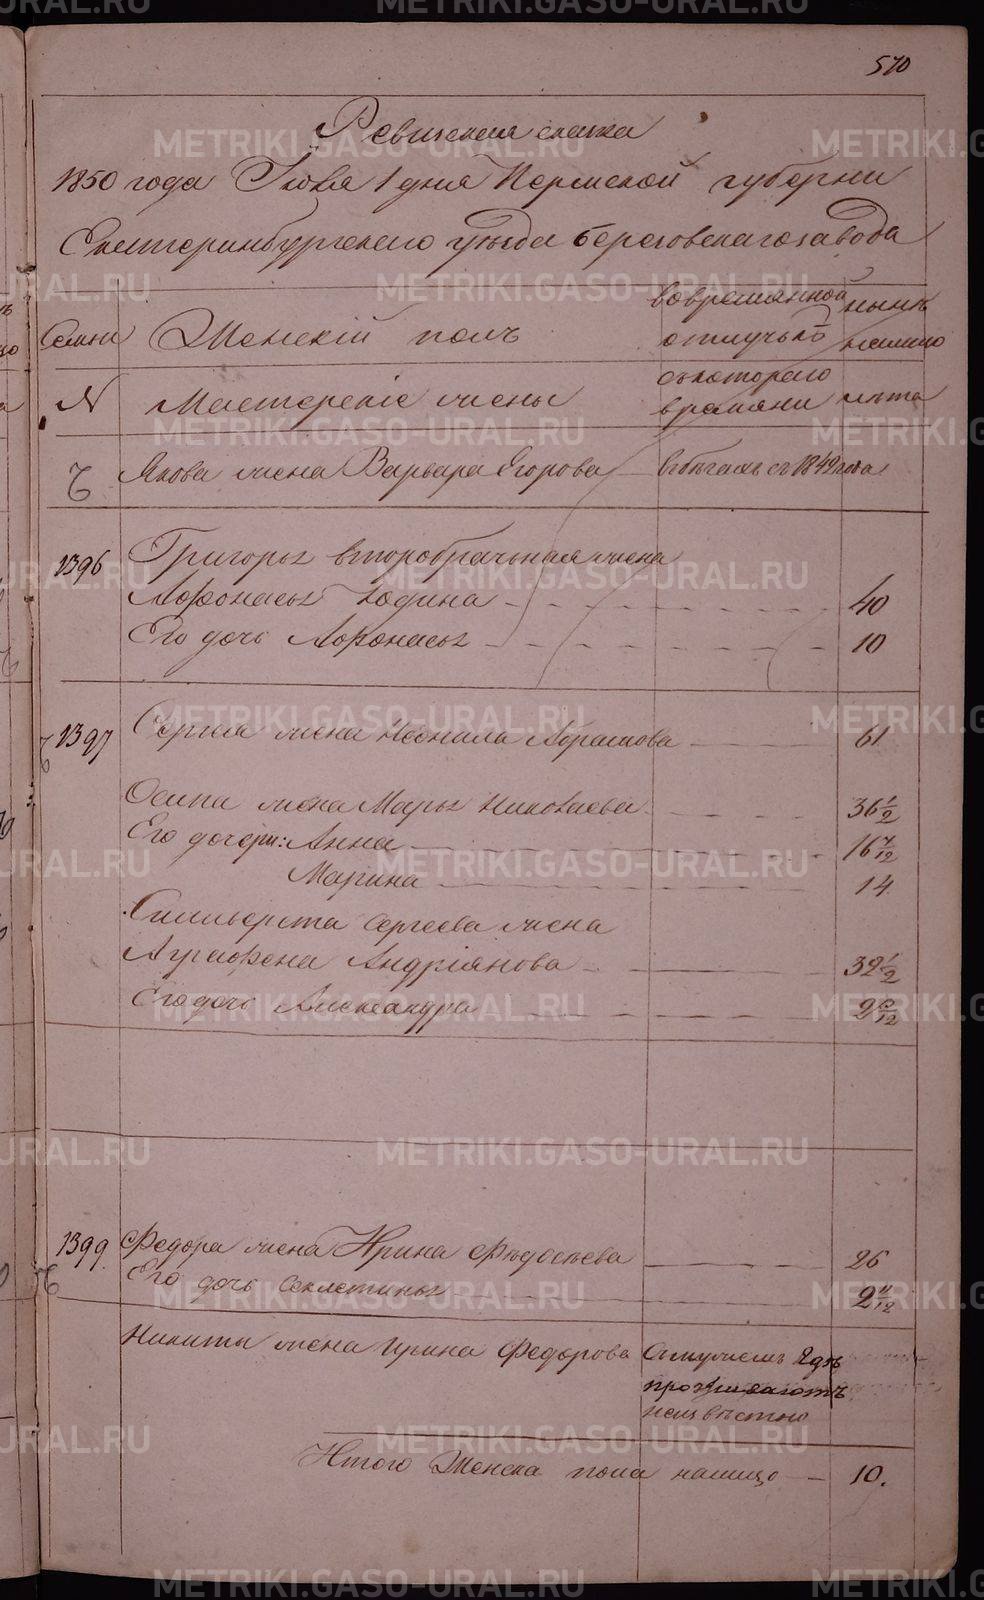 570
Ревизская сказка
1850 года Июля 1 дня Пермской губернии
Екатеринбургскаго уезда Березовскаго завода
Семьи Женскій полъ вовременной отлучьке нынъ налицо
N Мастерскіе жены съкотораго времяни лѣта
Якова жена Варвара Егорова вбѣгахъ съ 1849 года
1396 Григорья второбрачьная жена
Афонасья Юдина 40
Его дочь Афонасья 10
1397 Сергея жена Неонила Абрамова 61
Осипа жена Марья Николаева 36 1/2
Его дочери: Анна 16 7/12
Марина 14
Сильверста Сергеева жена
Аграфена Андріянова 32 1/2
Его дочь Александра
1399 Федора жена Ирина Федосѣева 26
Его дочь Секлетинья 2 11/12
Никиты жена Ирина Федорова Смужемъ Где
проживаютъ
неизвѣстно
Итого Женска пола налицо 10.
METRIKI.GASO-URAL.RU